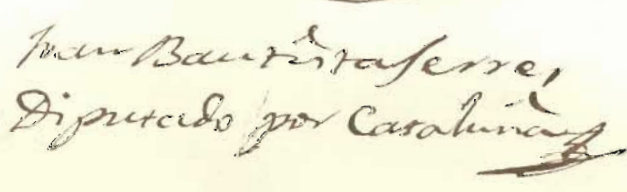 Juan Bautista Serres,
Diputado por Cataluña